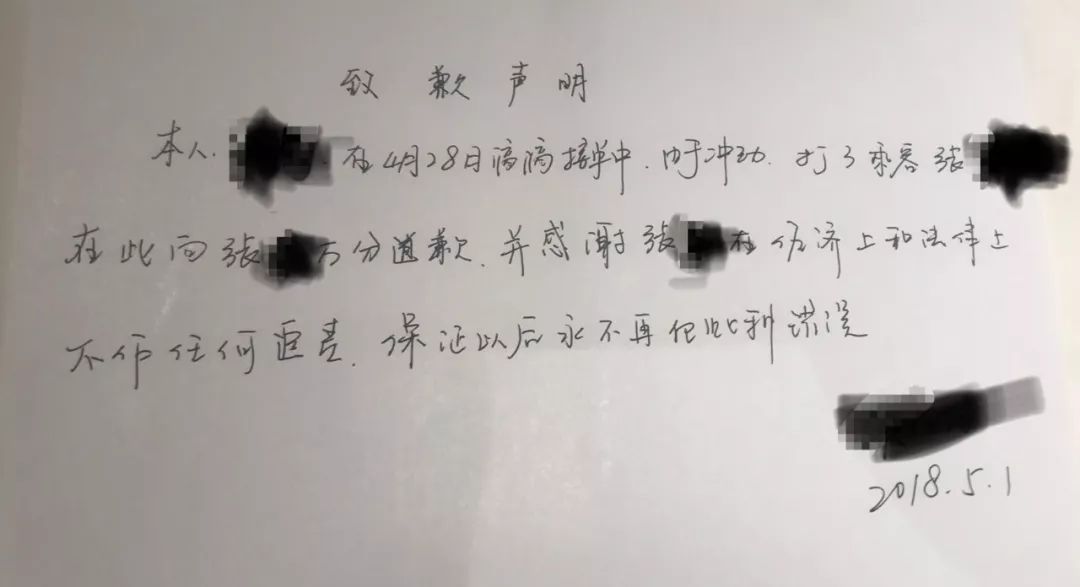 致歉声明
本人 在4月28日滴滴接单中.由于冲动.打了乘客张
在此向张 万分道歉.并感谢张 在经济上和法律上
不作任何追责.保证以后永不再犯此类错误
2018.5.1